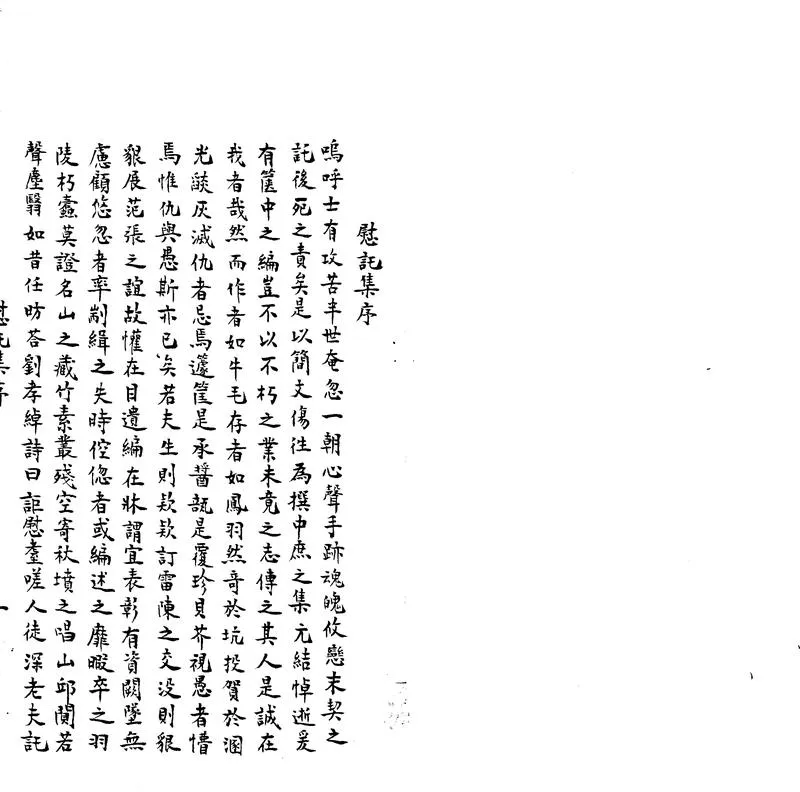 慰託集序
嗚呼士有攻苦半世奄忽一朝心聲手跡魂魄攸戀末契之
託後死之責矣是以簡文傷往為撰中庶之集元結悼逝爰
有篋中之編豈不以不朽之業未竟之志傳之其人是誠在
我者哉然而作者如牛毛存者如鳳羽然奇於坑投賀於溷
光燄灰滅仇者忌焉籧筐是承醬瓿是覆珍貝芥視愚者懵
焉惟仇與愚斯亦已矣若夫生則欵欵訂雷陳之交没則貇
貇展范張之誼故懽在目遺編在牀謂宜表彰有資闕墜無
慮顧悠忽者率剬緝之失時倥偬者或編述之靡暇卒之羽
陵朽蠹莫證名山之藏竹素叢殘空寄秋墳之唱山邱閴若
聲塵翳如昔任昉荅劉孝綽詩曰詎慰耋嗟人徒深老夫託
慰託集序
一